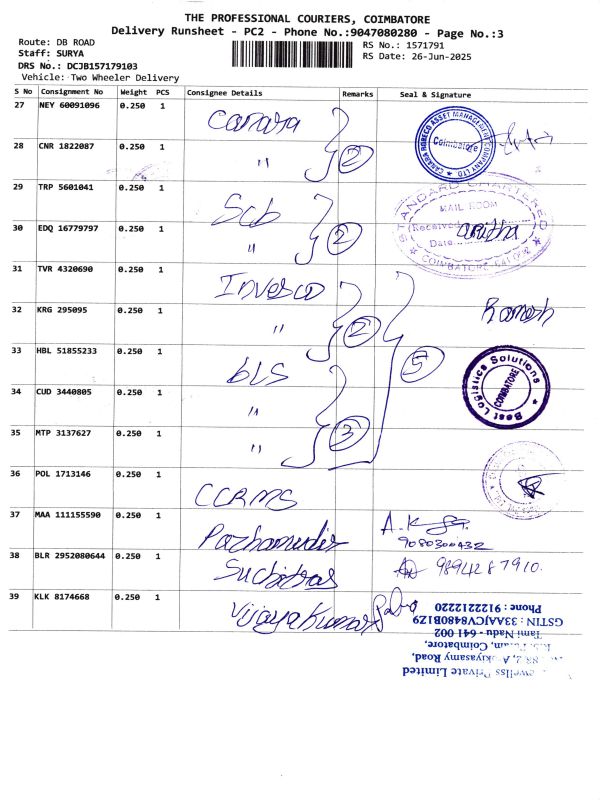 THE PROFESSIONAL COURIERS, COIMBATORE
Delivery Runsheet - PC2 - Phone No.:9047080280 - Page No.:3
Route: DB ROAD
RS No.: 1571791
Staff: SURYA
RS Date: 26-Jun-2025
DRS No.: DCJB157179103
Vehicle: Two Wheeler Delivery
S No Consignment No Weight PCS Consignee Details Remarks Seal & Signature
27 NEY 60091096 0.250 1 Canara
CANARA ROBECO ASSET MANAGEMENT COMPANY LTD
Coimbatore
28 CNR 1822087 0.250 1 " 2
29 TRP 5601041 0.250 1 Scb
STANDARD CHARTERED
MAIL ROOM
Received
Date
COIMBATORE
30 EDQ 16779797 0.250 1 " 2
31 TVR 4320690 0.250 1 Invesco
32 KRG 295095 0.250 1 " 2 Ramesh
33 HBL 51855233 0.250 1 bLS 5
Best Logistics Solutions
COIMBATORE
34 CUD 3440805 0.250 1 "
35 MTP 3137627 0.250 1 " 3
36 POL 1713146 0.250 1 CCRMS
37 MAA 111155590 0.250 1 Pazhamudir
9080300432
38 BLR 2952080644 0.250 1 Suchitras 9894287910.
39 KLK 8174668 0.250 1 Vijayakumar
Private Limited
Road,
Coimbatore,
Tamil Nadu - 641 002
GSTIN : 33AAJCV8480B1Z9
Phone : 9122212220